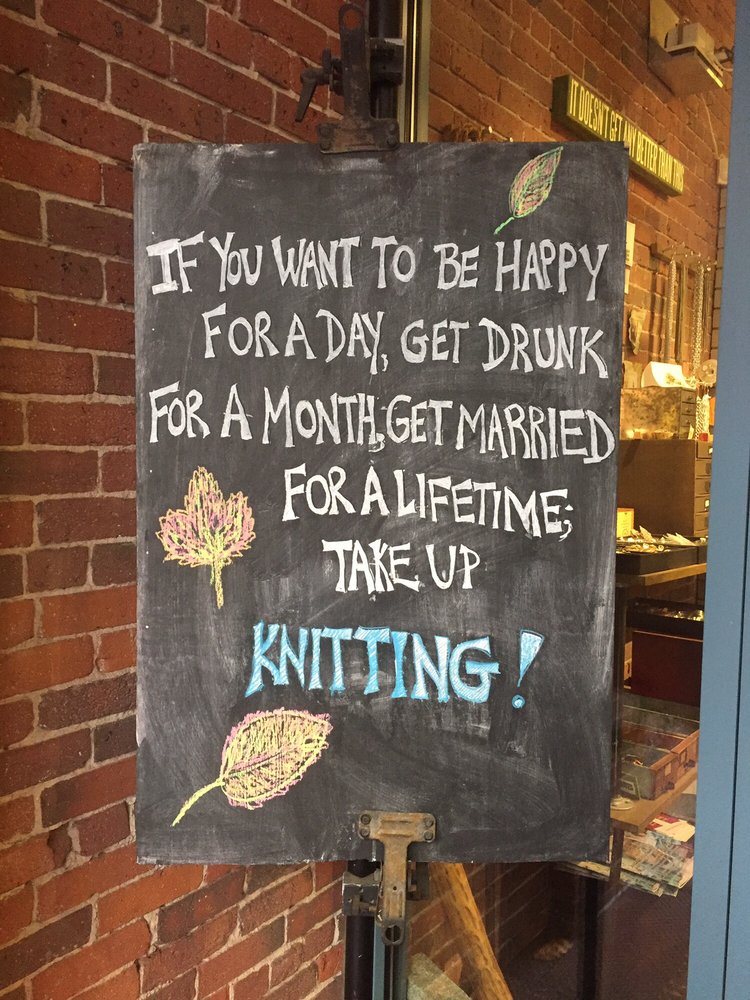 IT DOESN'T GET ANY BETTER THAN THIS
IF YOU WANT TO BE HAPPY
FOR A DAY, GET DRUNK
FOR A MONTH, GET MARRIED
FOR A LIFETIME;
TAKE UP
KNITTING!